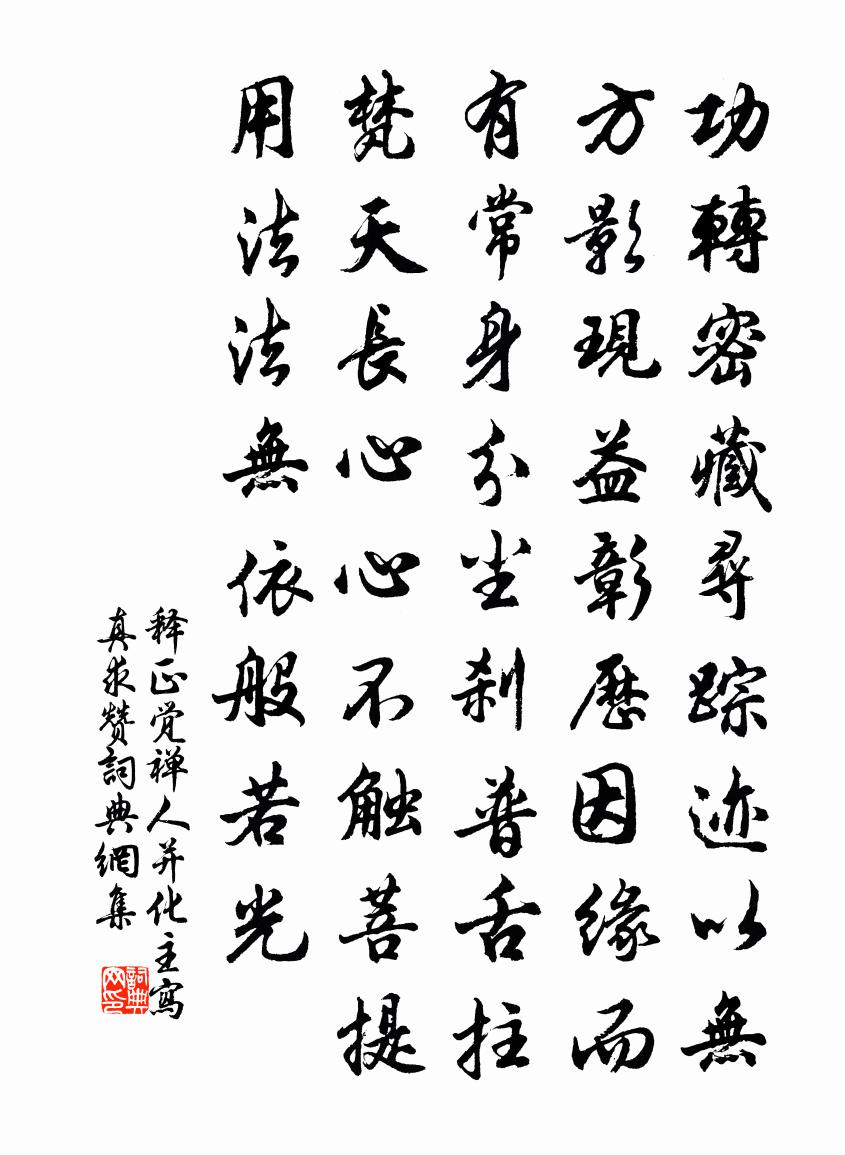 功轉密藏尋踪迹以無
方影現益彰歷因緣而
有常身分尘刹普舌拄
梵天長心心不触菩提
用法法無依般若光
释正觉禅人并化主寫
真求赞詞典網集
詞典网印